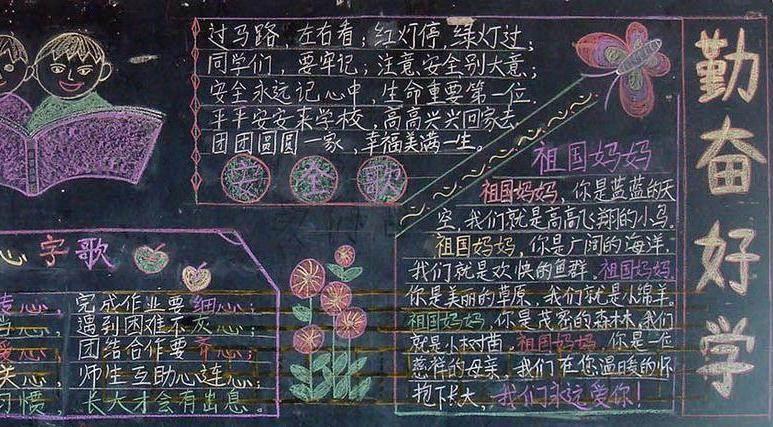 过马路,左右看;红灯停,绿灯过;
同学们,要牢记;注意安全别大意;
安全永远记心中,生命重要第一位.
平平安安来学校,高高兴兴回家去
团团圆圆一家,幸福美满一生。
安全歌
祖国妈妈
祖国妈妈,你是蓝蓝的天
空,我们就是高高飞翔的小鸟.
祖国妈妈,你是广阔的海洋.
我们就是欢快的鱼群.祖国妈妈.
你是美丽的草原,我们就是小绵羊.
祖国妈妈,你是茂密的森林,我们
就是小树苗,祖国妈妈,你是一位
慈祥的母亲,我们在您温暖的怀
抱下长大,我们永远爱你!
心字歌
心,完成作业要细心;
心,遇到困难不灰心;
爱心;团结合作要齐心;
关心,师生互助心连心;
习惯,长大才会有出息。
勤奋好学